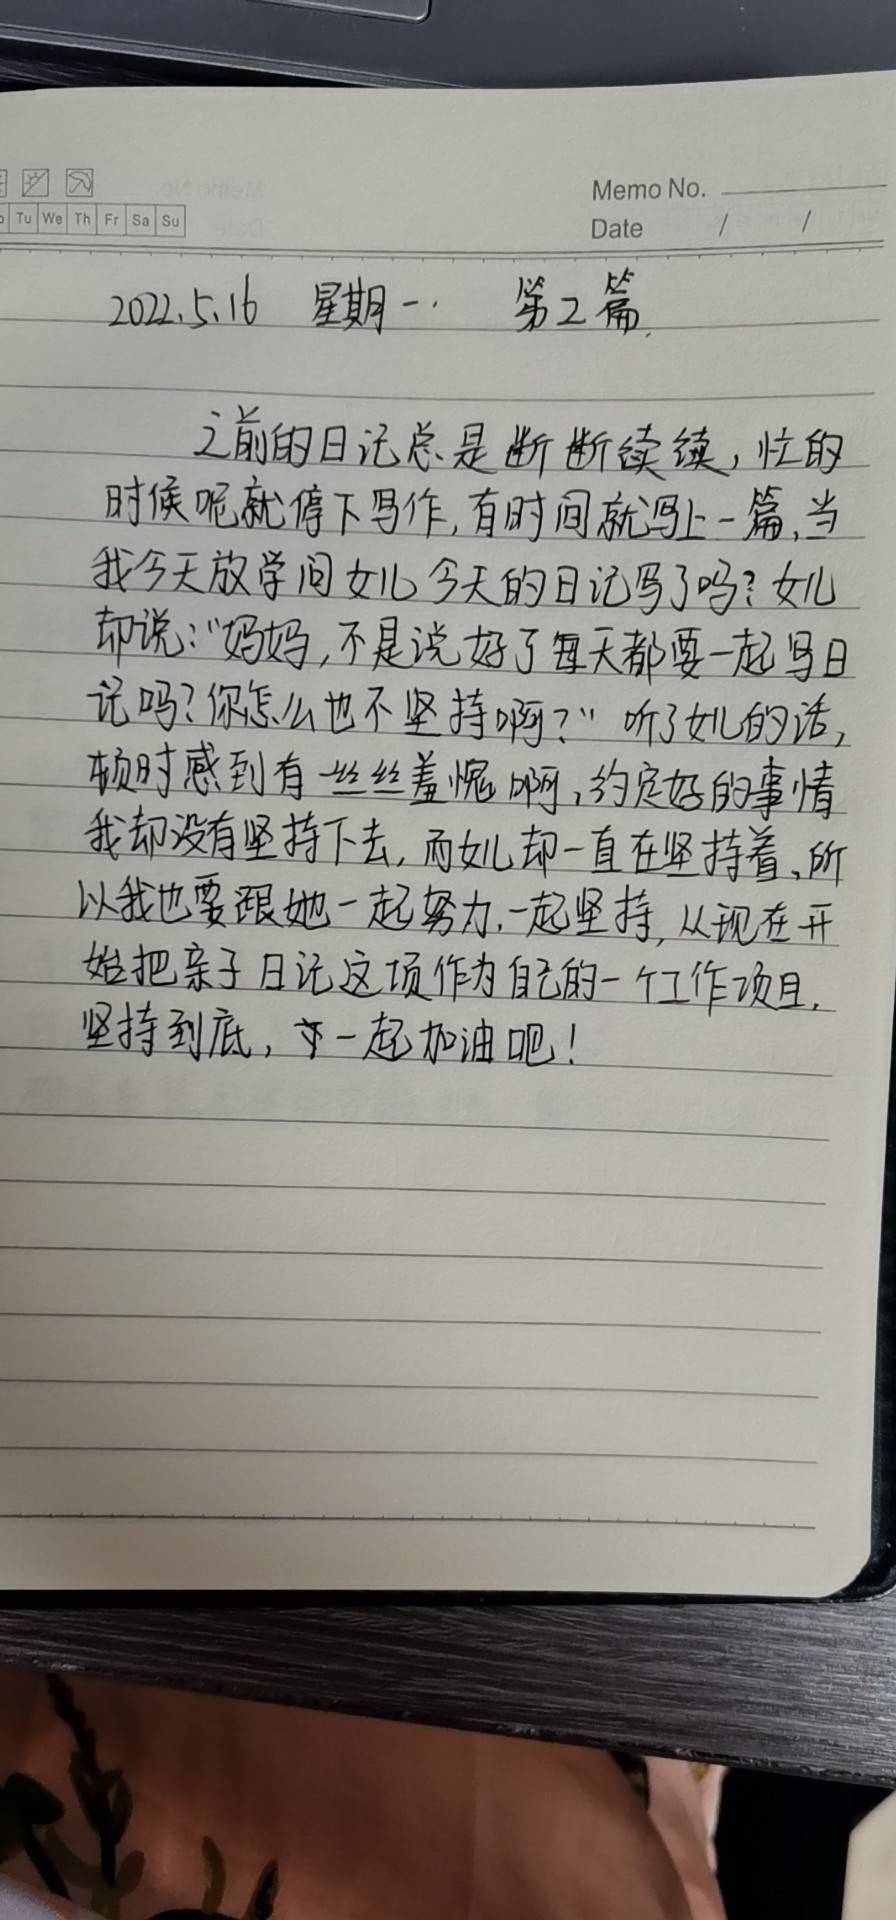 Memo No.
Tu We Th Fr Sa Su
Date / /
2022.5.16 星期一. 第2篇.
之前的日记总是断断续续,忙的
时候呢就停下写作,有时间就写上一篇,当
我今天放学问女儿今天的日记写了吗?女儿
却说:“妈妈,不是说好了每天都要一起写日
记吗?你怎么也不坚持啊?”听了女儿的话,
顿时感到有一丝丝羞愧啊,约定好的事情
我却没有坚持下去,而女儿却一直在坚持着,所
以我也要跟她一起努力,一起坚持,从现在开
始把亲子日记这项作为自己的一个工作项目,
坚持到底,一起加油吧!